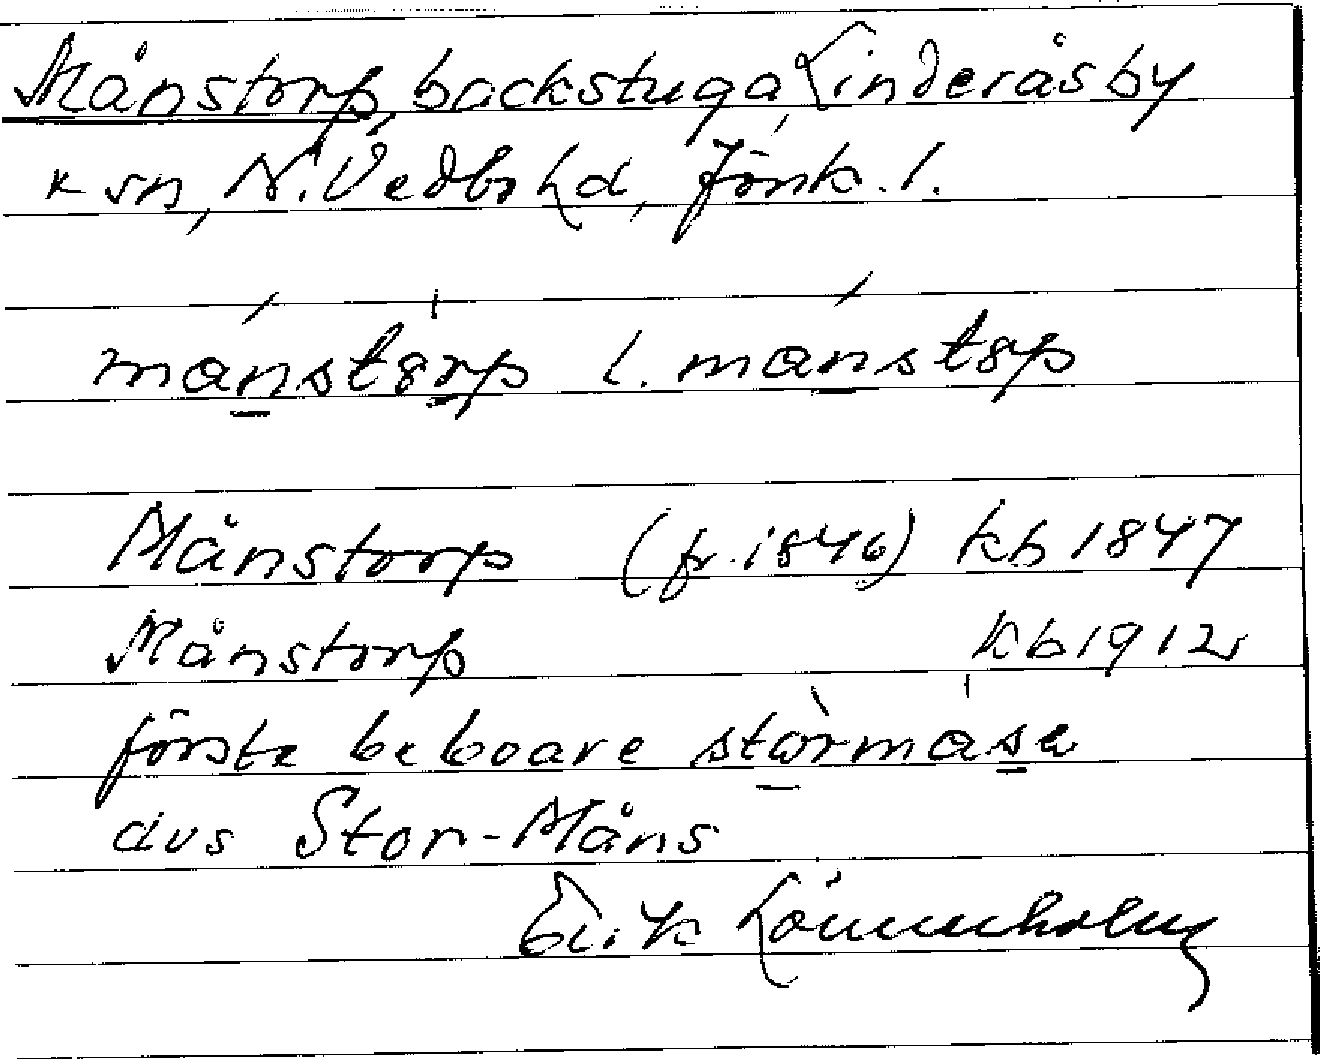 Månstorp, backstuga, Linderås by
k sn, N. Vedbo hd, Jönk. l.
månstörp l. månstöp
Månstorp (fr. 1846) kb 1847
Månstorp kb 1912
förste beboare stòrmåsa
dvs Stor-Måns
Erik Lönnerholm